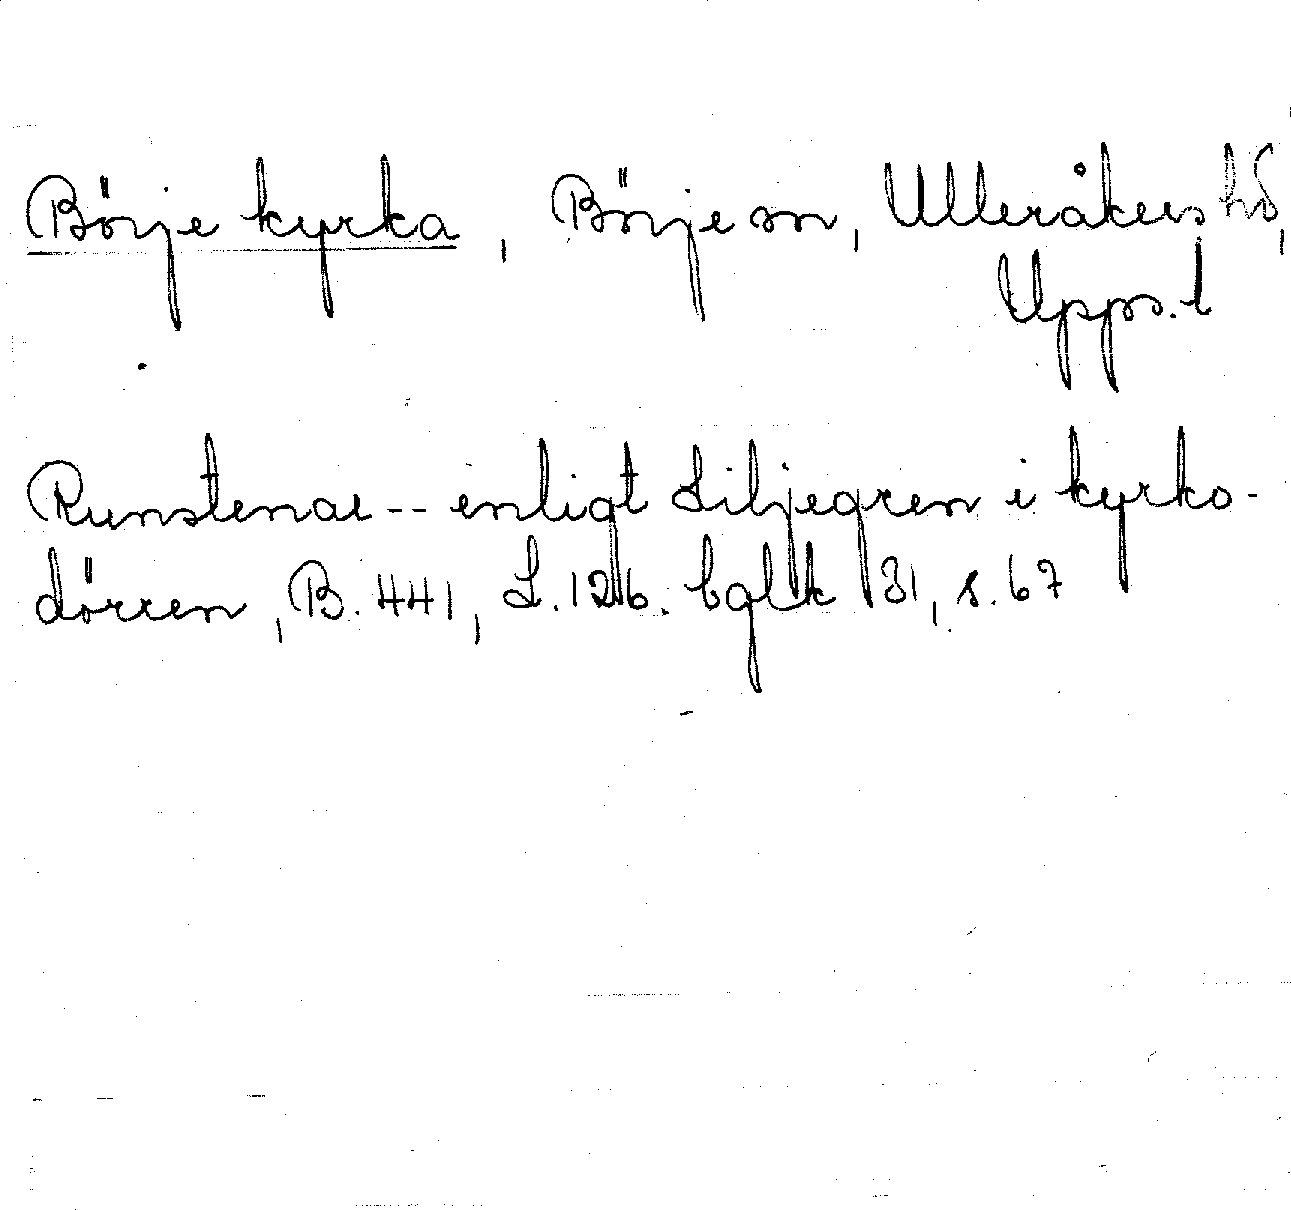 Börje kyrka, Börje sn, Ulleråkers hd,
Upps. l
Runstenar -- enligt Liljegren i kyrko-
dörren, B. 441, L. 126. bqlk 131, s. 67